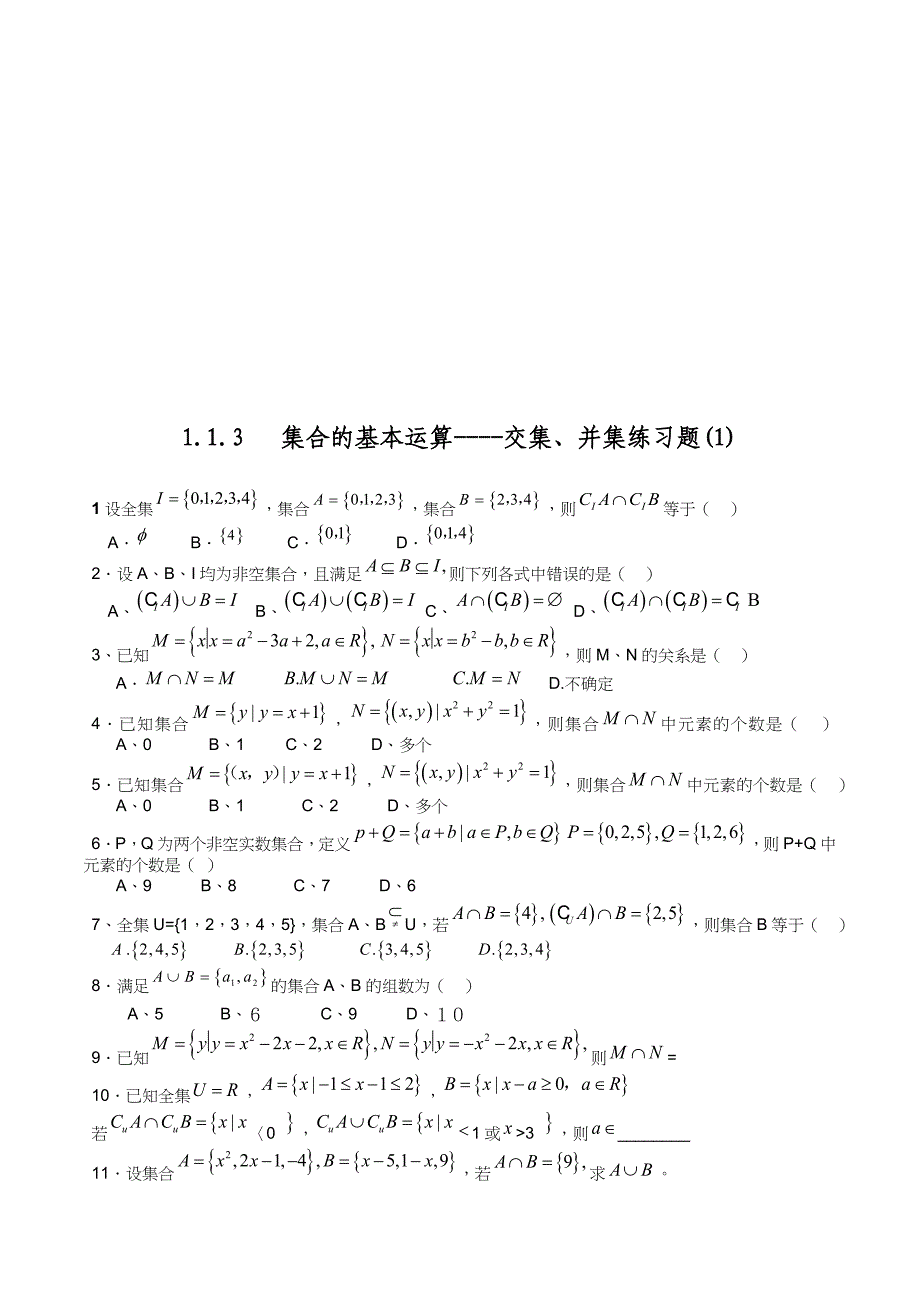 1.1.3 集合的基本运算----交集、并集练习题(1)
1 设全集 I={0,1,2,3,4}，集合 A={0,1,2,3}，集合 B={2,3,4}，则 C_I A∩C_I B 等于（ ）
A．ϕ B．{4} C．{0,1} D．{0,1,4}
2．设 A、B、I 均为非空集合，且满足 A⊆B⊆I, 则下列各式中错误的是（ ）
A、(∁_I A)∪B=I B、(∁_I A)∪(∁_I B)=I C、A∩(∁_I B)=∅ D、(∁_I A)∩(∁_I B)=∁_I B
3、已知 M={x|x=a²−3a+2,a∈R}, N={x|x=b²−b,b∈R}，则 M、N 的关系是（ ）
A．M∩N=M B.M∪N=M C.M=N D.不确定
4．已知集合 M={y|y=x+1}，N={(x,y)|x²+y²=1}，则集合 M∩N 中元素的个数是（ ）
A、0 B、1 C、2 D、多个
5．已知集合 M={（x，y）|y=x+1}，N={(x,y)|x²+y²=1}，则集合 M∩N 中元素的个数是（ ）
A、0 B、1 C、2 D、多个
6．P，Q 为两个非空实数集合，定义 p+Q={a+b|a∈P,b∈Q} P={0,2,5},Q={1,2,6}，则 P+Q 中
元素的个数是（ ）
A、9 B、8 C、7 D、6
7、全集 U={1，2，3，4，5}，集合 A、B⊊U，若 A∩B={4},(∁_U A)∩B={2,5}，则集合 B 等于（ ）
A.{2,4,5} B.{2,3,5} C.{3,4,5} D.{2,3,4}
8．满足 A∪B={a₁,a₂} 的集合 A、B 的组数为（ ）
A、5 B、６ C、9 D、１０
9．已知 M={y|y=x²−2x−2,x∈R},N={y|y=−x²−2x,x∈R}, 则 M∩N =
10．已知全集 U=R，A={x|−1≤x−1≤2}，B={x|x−a≥0，a∈R}
若 C_u A∩C_u B={x|x〈0 }，C_u A∪C_u B={x|x<1 或 x>3 }，则 a∈________
11．设集合 A={x²,2x−1,−4},B={x−5,1−x,9}，若 A∩B={9}, 求 A∪B 。